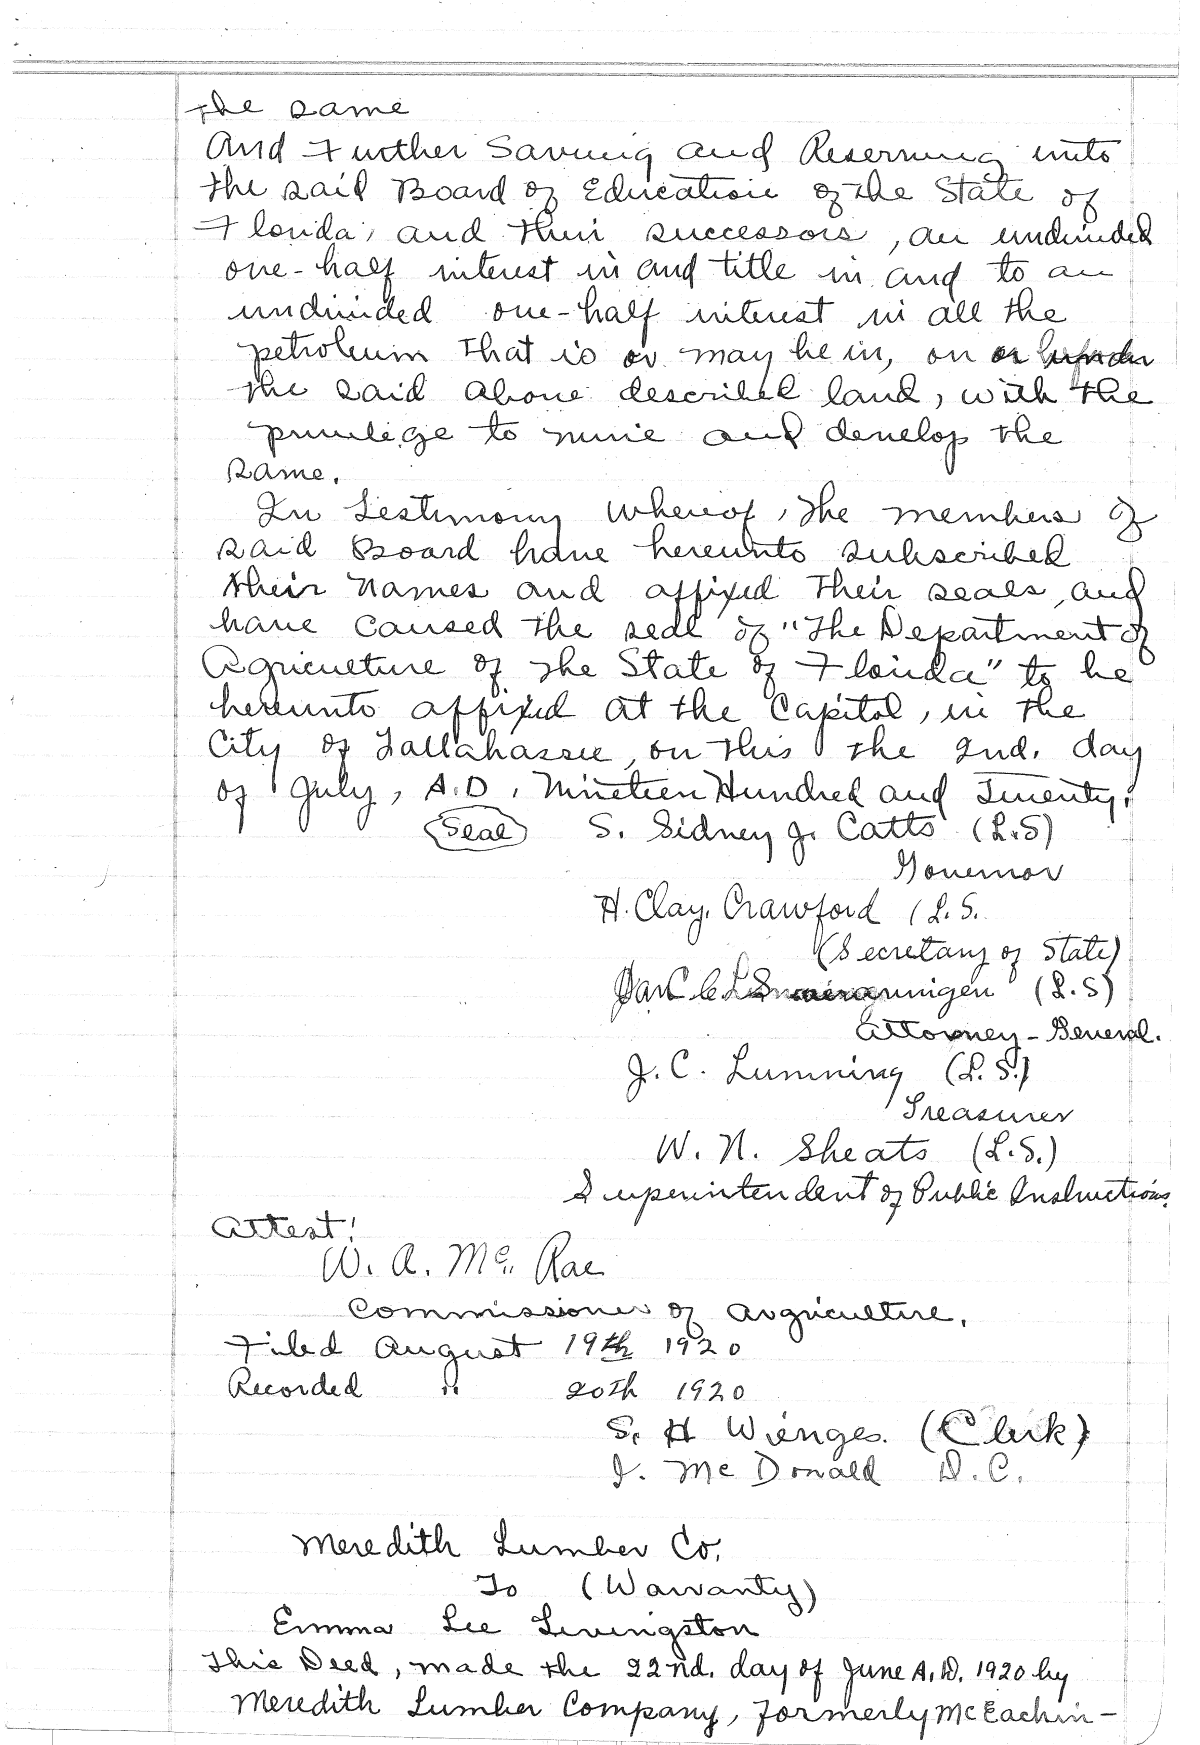 the same
And Further Saving and Reserving unto
the said Board of Education of the State of
Florida, and their successors, an undivided
one-half interest in and title in and to an
undivided one-half interest in all the
petroleum that is or may be in, on or under
the said above described land, with the
privilege to mine and develop the
same.
In Testimony Whereof, the members of
said Board have hereunto subscribed
their names and affixed their seals, and
have caused the seal of "The Department of
Agriculture of the State of Florida" to be
hereunto affixed at the Capitol, in the
City of Tallahassee, on this the 2nd. day
of July, A.D. Nineteen Hundred and Twenty.
(Seal) S. Sidney J. Catts (L.S)
Governor
H. Clay. Crawford (L.S.
(Secretary of State)
(L.S)
Attorney-General.
J. C. Lumning (L.S.)
Treasurer
W. N. Sheats (L.S.)
Superintendent of Public Instructions.
Attest!
W. A. Mc. Rae
Commissioner of Avgriculture.
Filed August 19th 1920
Recorded " 20th 1920
S. H Wienges. (Clerk)
J. McDonald D.C.
Meredith Lumber Co.
To (Warranty)
Emma Lee Livingston
This Deed, made the 22nd. day of June A.D. 1920 by
Meredith Lumber Company, formerly McEachin-